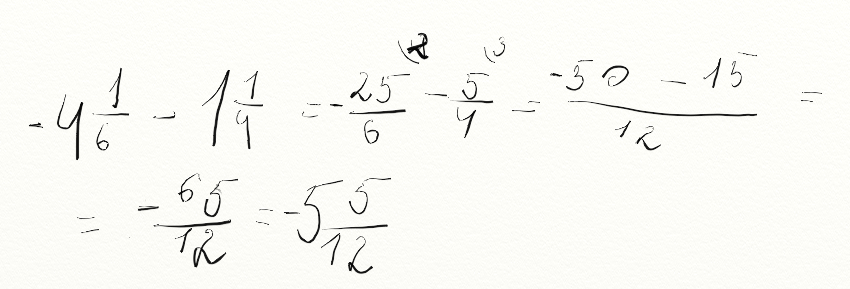 -4 1/6 - 1 1/4 = -25/6 (2 - 5/4 (3 = (-50 - 15)/12 =
= -65/12 = -5 5/12